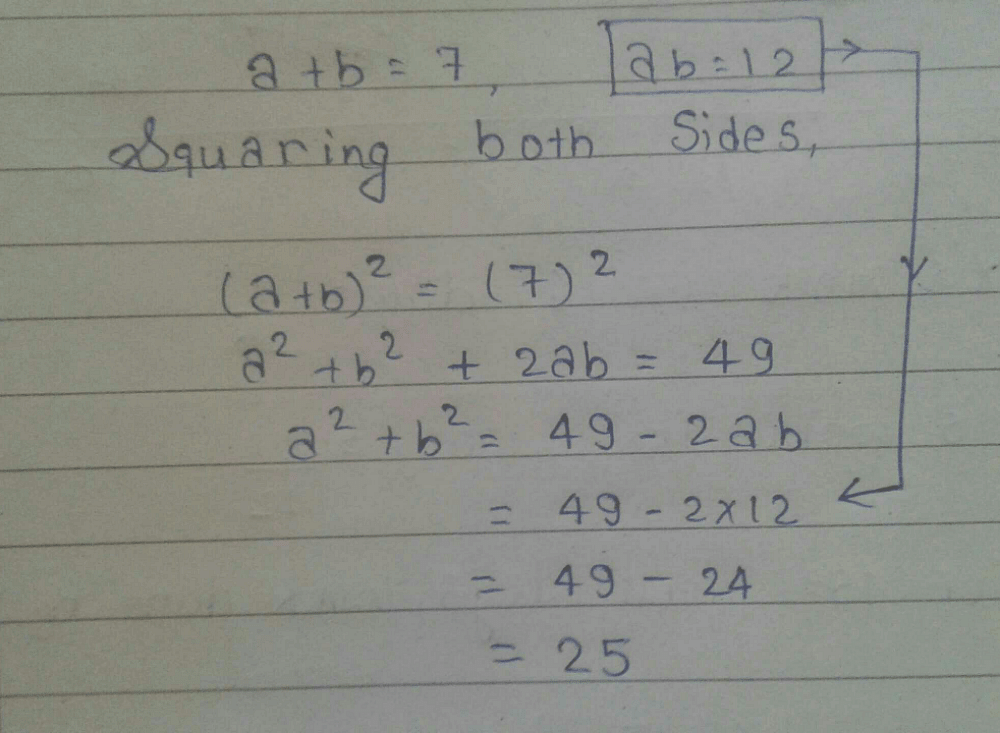 a + b = 7, ab = 12
Squaring both Sides,
(a+b)² = (7)²
a² + b² + 2ab = 49
a² + b² = 49 - 2ab
= 49 - 2×12
= 49 - 24
= 25